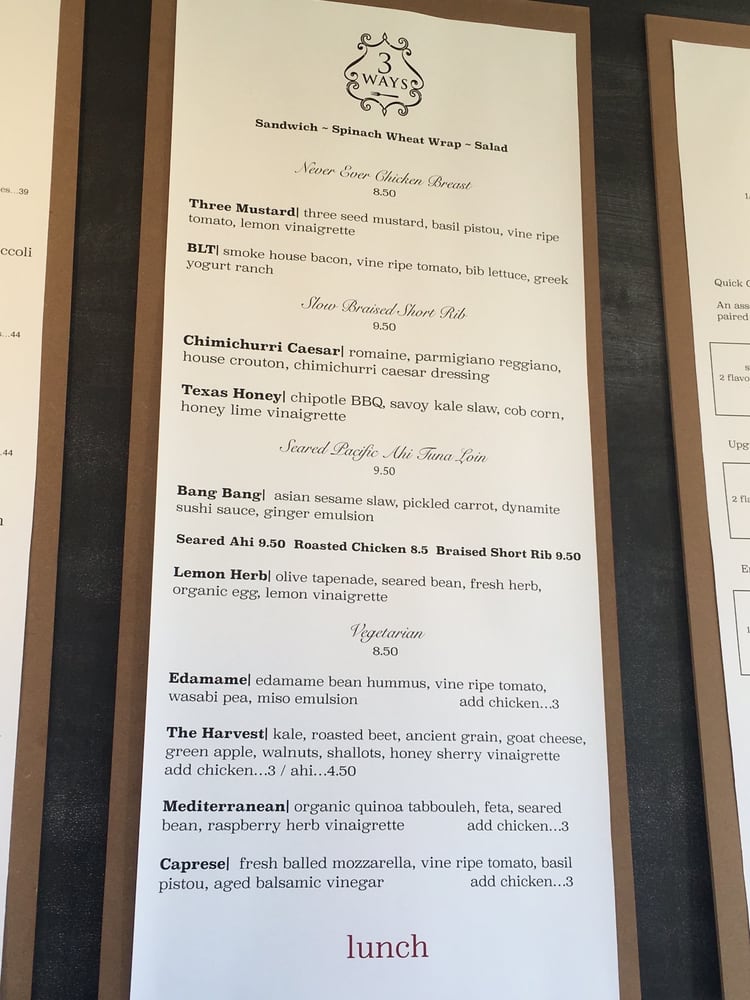 3
WAYS
Sandwich ~ Spinach Wheat Wrap ~ Salad
Never Ever Chicken Breast
8.50
Three Mustard| three seed mustard, basil pistou, vine ripe
tomato, lemon vinaigrette
BLT| smoke house bacon, vine ripe tomato, bib lettuce, greek
yogurt ranch
Slow Braised Short Rib
9.50
Chimichurri Caesar| romaine, parmigiano reggiano,
house crouton, chimichurri caesar dressing
Texas Honey| chipotle BBQ, savoy kale slaw, cob corn,
honey lime vinaigrette
Seared Pacific Ahi Tuna Loin
9.50
Bang Bang| asian sesame slaw, pickled carrot, dynamite
sushi sauce, ginger emulsion
Seared Ahi 9.50 Roasted Chicken 8.5 Braised Short Rib 9.50
Lemon Herb| olive tapenade, seared bean, fresh herb,
organic egg, lemon vinaigrette
Vegetarian
8.50
Edamame| edamame bean hummus, vine ripe tomato,
wasabi pea, miso emulsion add chicken...3
The Harvest| kale, roasted beet, ancient grain, goat cheese,
green apple, walnuts, shallots, honey sherry vinaigrette
add chicken...3 / ahi...4.50
Mediterranean| organic quinoa tabbouleh, feta, seared
bean, raspberry herb vinaigrette add chicken...3
Caprese| fresh balled mozzarella, vine ripe tomato, basil
pistou, aged balsamic vinegar add chicken...3
lunch
es...39
ccoli
...44
.44
Quick
An ass
paired
2 flavo
Upg
2 fla